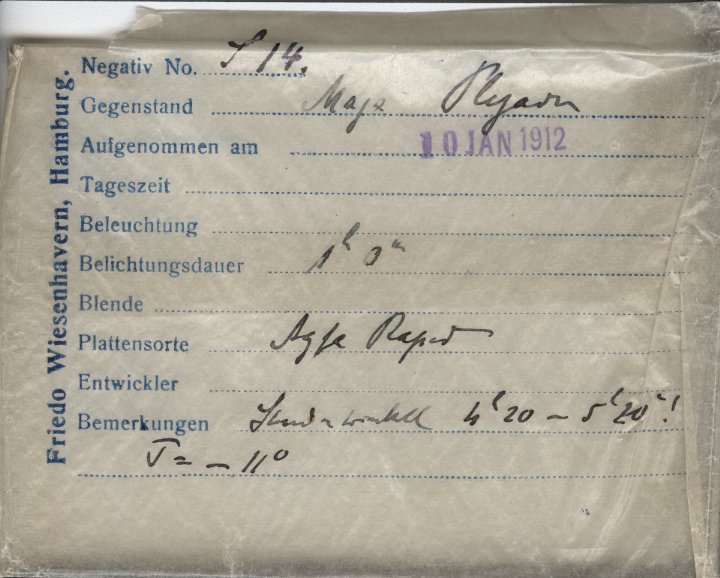 Friedo Wiesenhavern, Hamburg.
Negativ No. S 14.
Gegenstand Maja Plejaden
Aufgenommen am 10 JAN 1912
Tageszeit
Beleuchtung
Belichtungsdauer 1h 0m
Blende
Plattensorte Agfa Rapid
Entwickler
Bemerkungen Stundenwinkel 4h 20 – 5h 20m!
T = – 11°